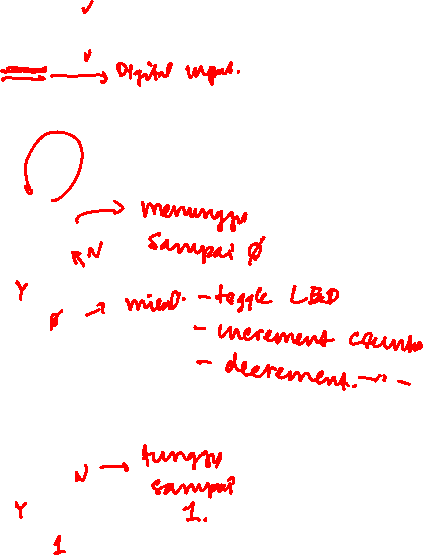 Digital input.
menunggu
sampai ø
N
Y
ø misal. - toggle LED
- increment counte
- decrement. - -
N tunggu
sampai
1.
Y
1